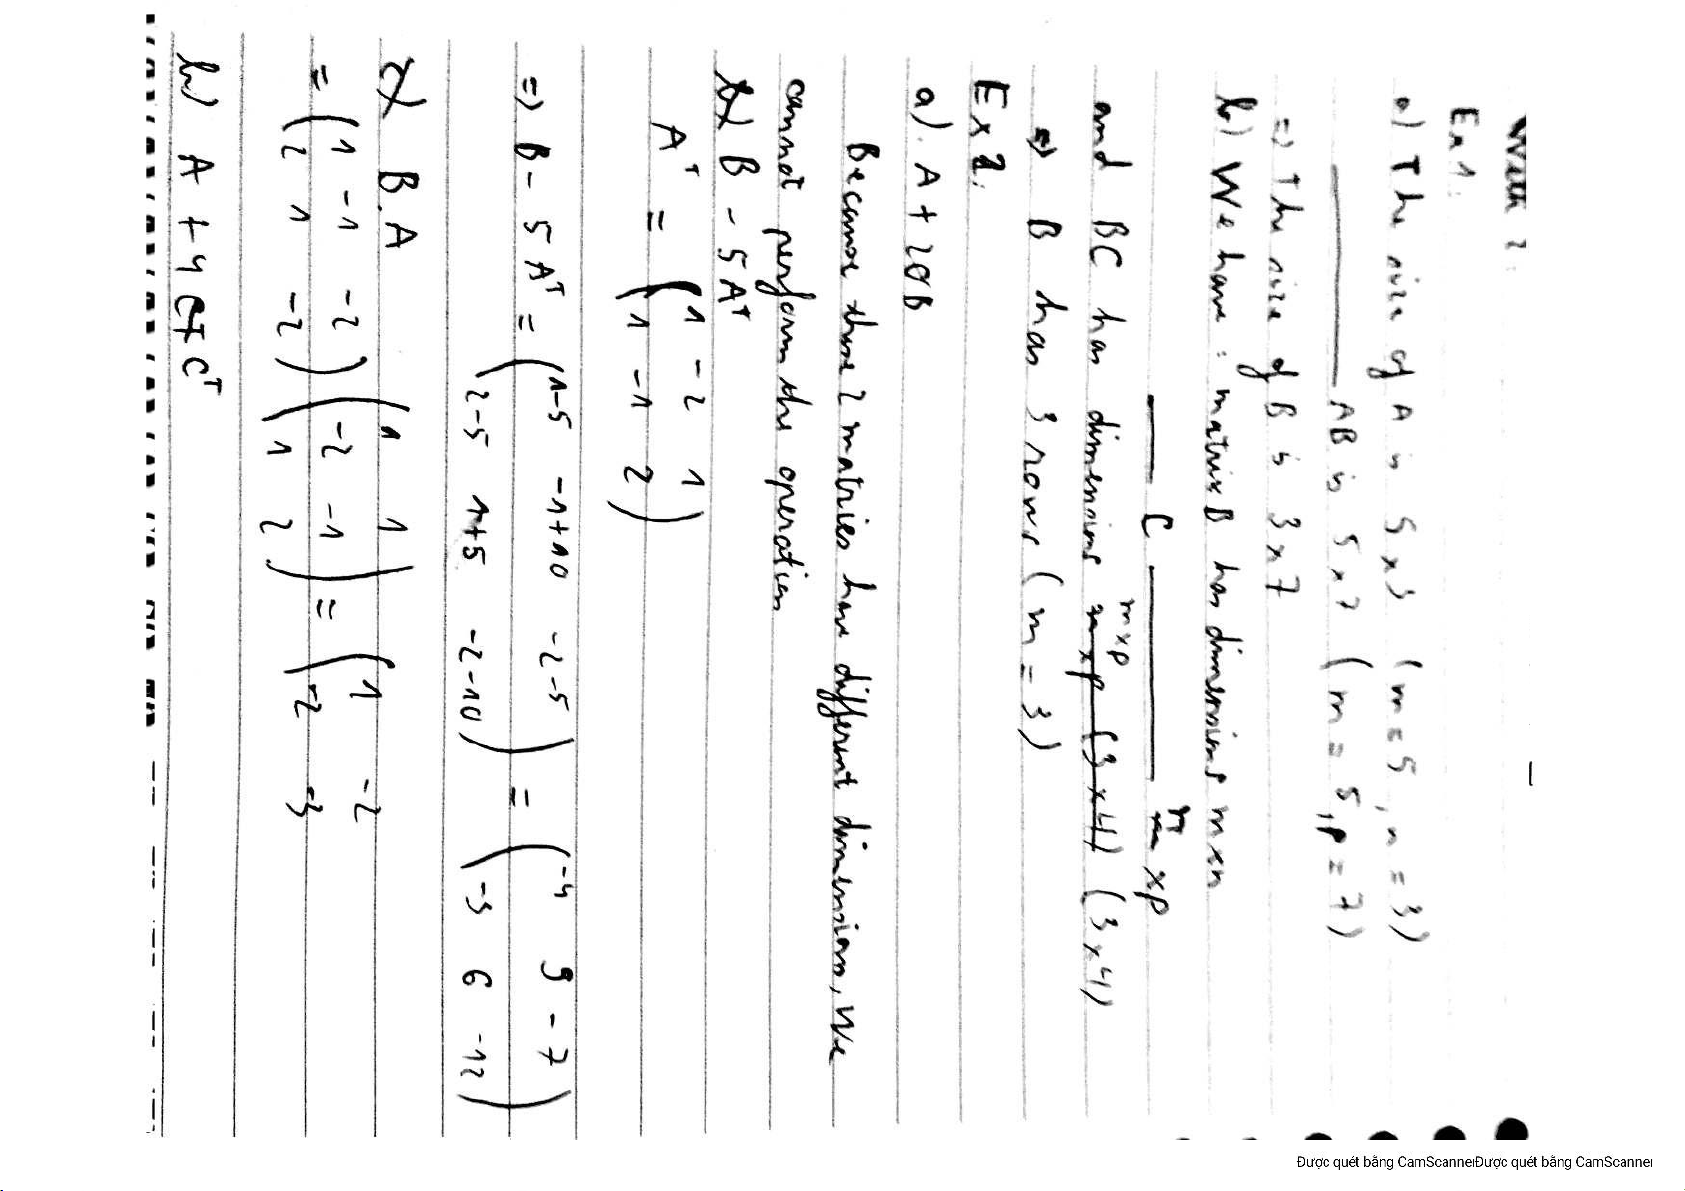 Week 2:
Ex 1:
a) The size of A is 5x3 (m = 5, n = 3)
AB is 5x7 (m = 5, p = 7)
=) The size of B is 3x7
b) We have: matrix B has dimensions mxn
C m xp
and BC has dimensions mxp (3x4)
=) B has 3 rows (m = 3)
Ex 2:
a). A + 20B
Because these 2 matrices have different dimension, we
cannot perform the operation
b) B - 5A^T
A^T = ( 1 -2 1
1 -1 2 )
=) B - 5A^T = ( 1-5 -1+10 -2-5
2-5 1+5 -2-10 ) = ( -4 9 -7
-3 6 -12 )
B.A
= ( 1 -1 -2
2 1 -2 ) ( 1 1
-2 -1
1 2 ) = ( 1 -2
-2 -3
b) A + 4 C^T
Được quét bằng CamScanner Được quét bằng CamScanner